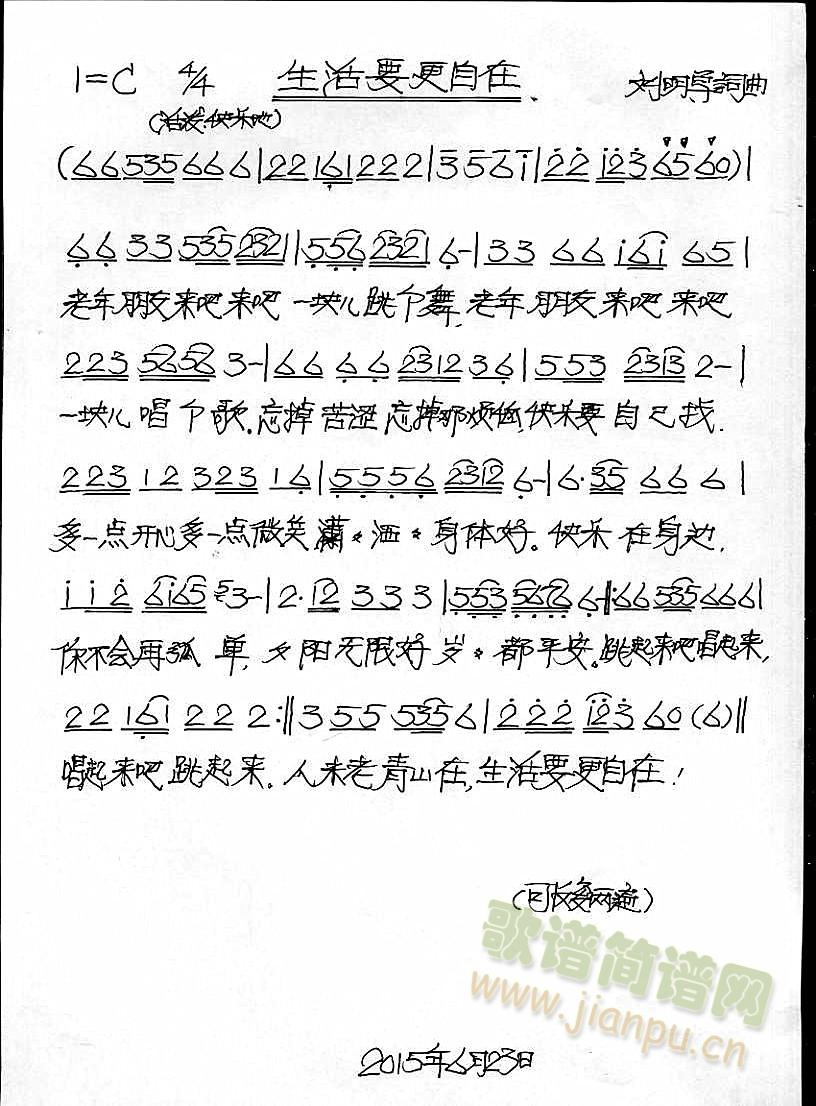 1=C 4/4 生活要更自在 刘明导詞曲
(活泼、快乐地)
(66535666|22161222|356i|22 i23 6560)|
66 33 535 2321|556 2321 6-|33 66 i6i 65|
老年朋友来吧来吧 一块儿跳个舞,老年朋友来吧 来吧
223 5658 3-|66 66 2312 36|553 2313 2-|
一块儿 唱个歌.忘掉苦涩 忘掉那烦恼,快乐要自己找.
223 12 323 16|5556 2312 6-|6·35 66 6|
多一点开心多一点微笑潇 洒 身体好。快乐在身边,
i i2 6i65 53-|2·12 33 3|553 567 6-‖:66535666|
你不会再孤 单,夕阳无限好岁 都平安。跳起来吧唱起来,
22 161 22 2:‖355 535 6|222 i23 60(6)‖
唱起来吧跳起来。人未老青山在,生活要更自在!
(可反复两遍)
歌谱简谱网
www.jianpu.cn
2015年6月23日